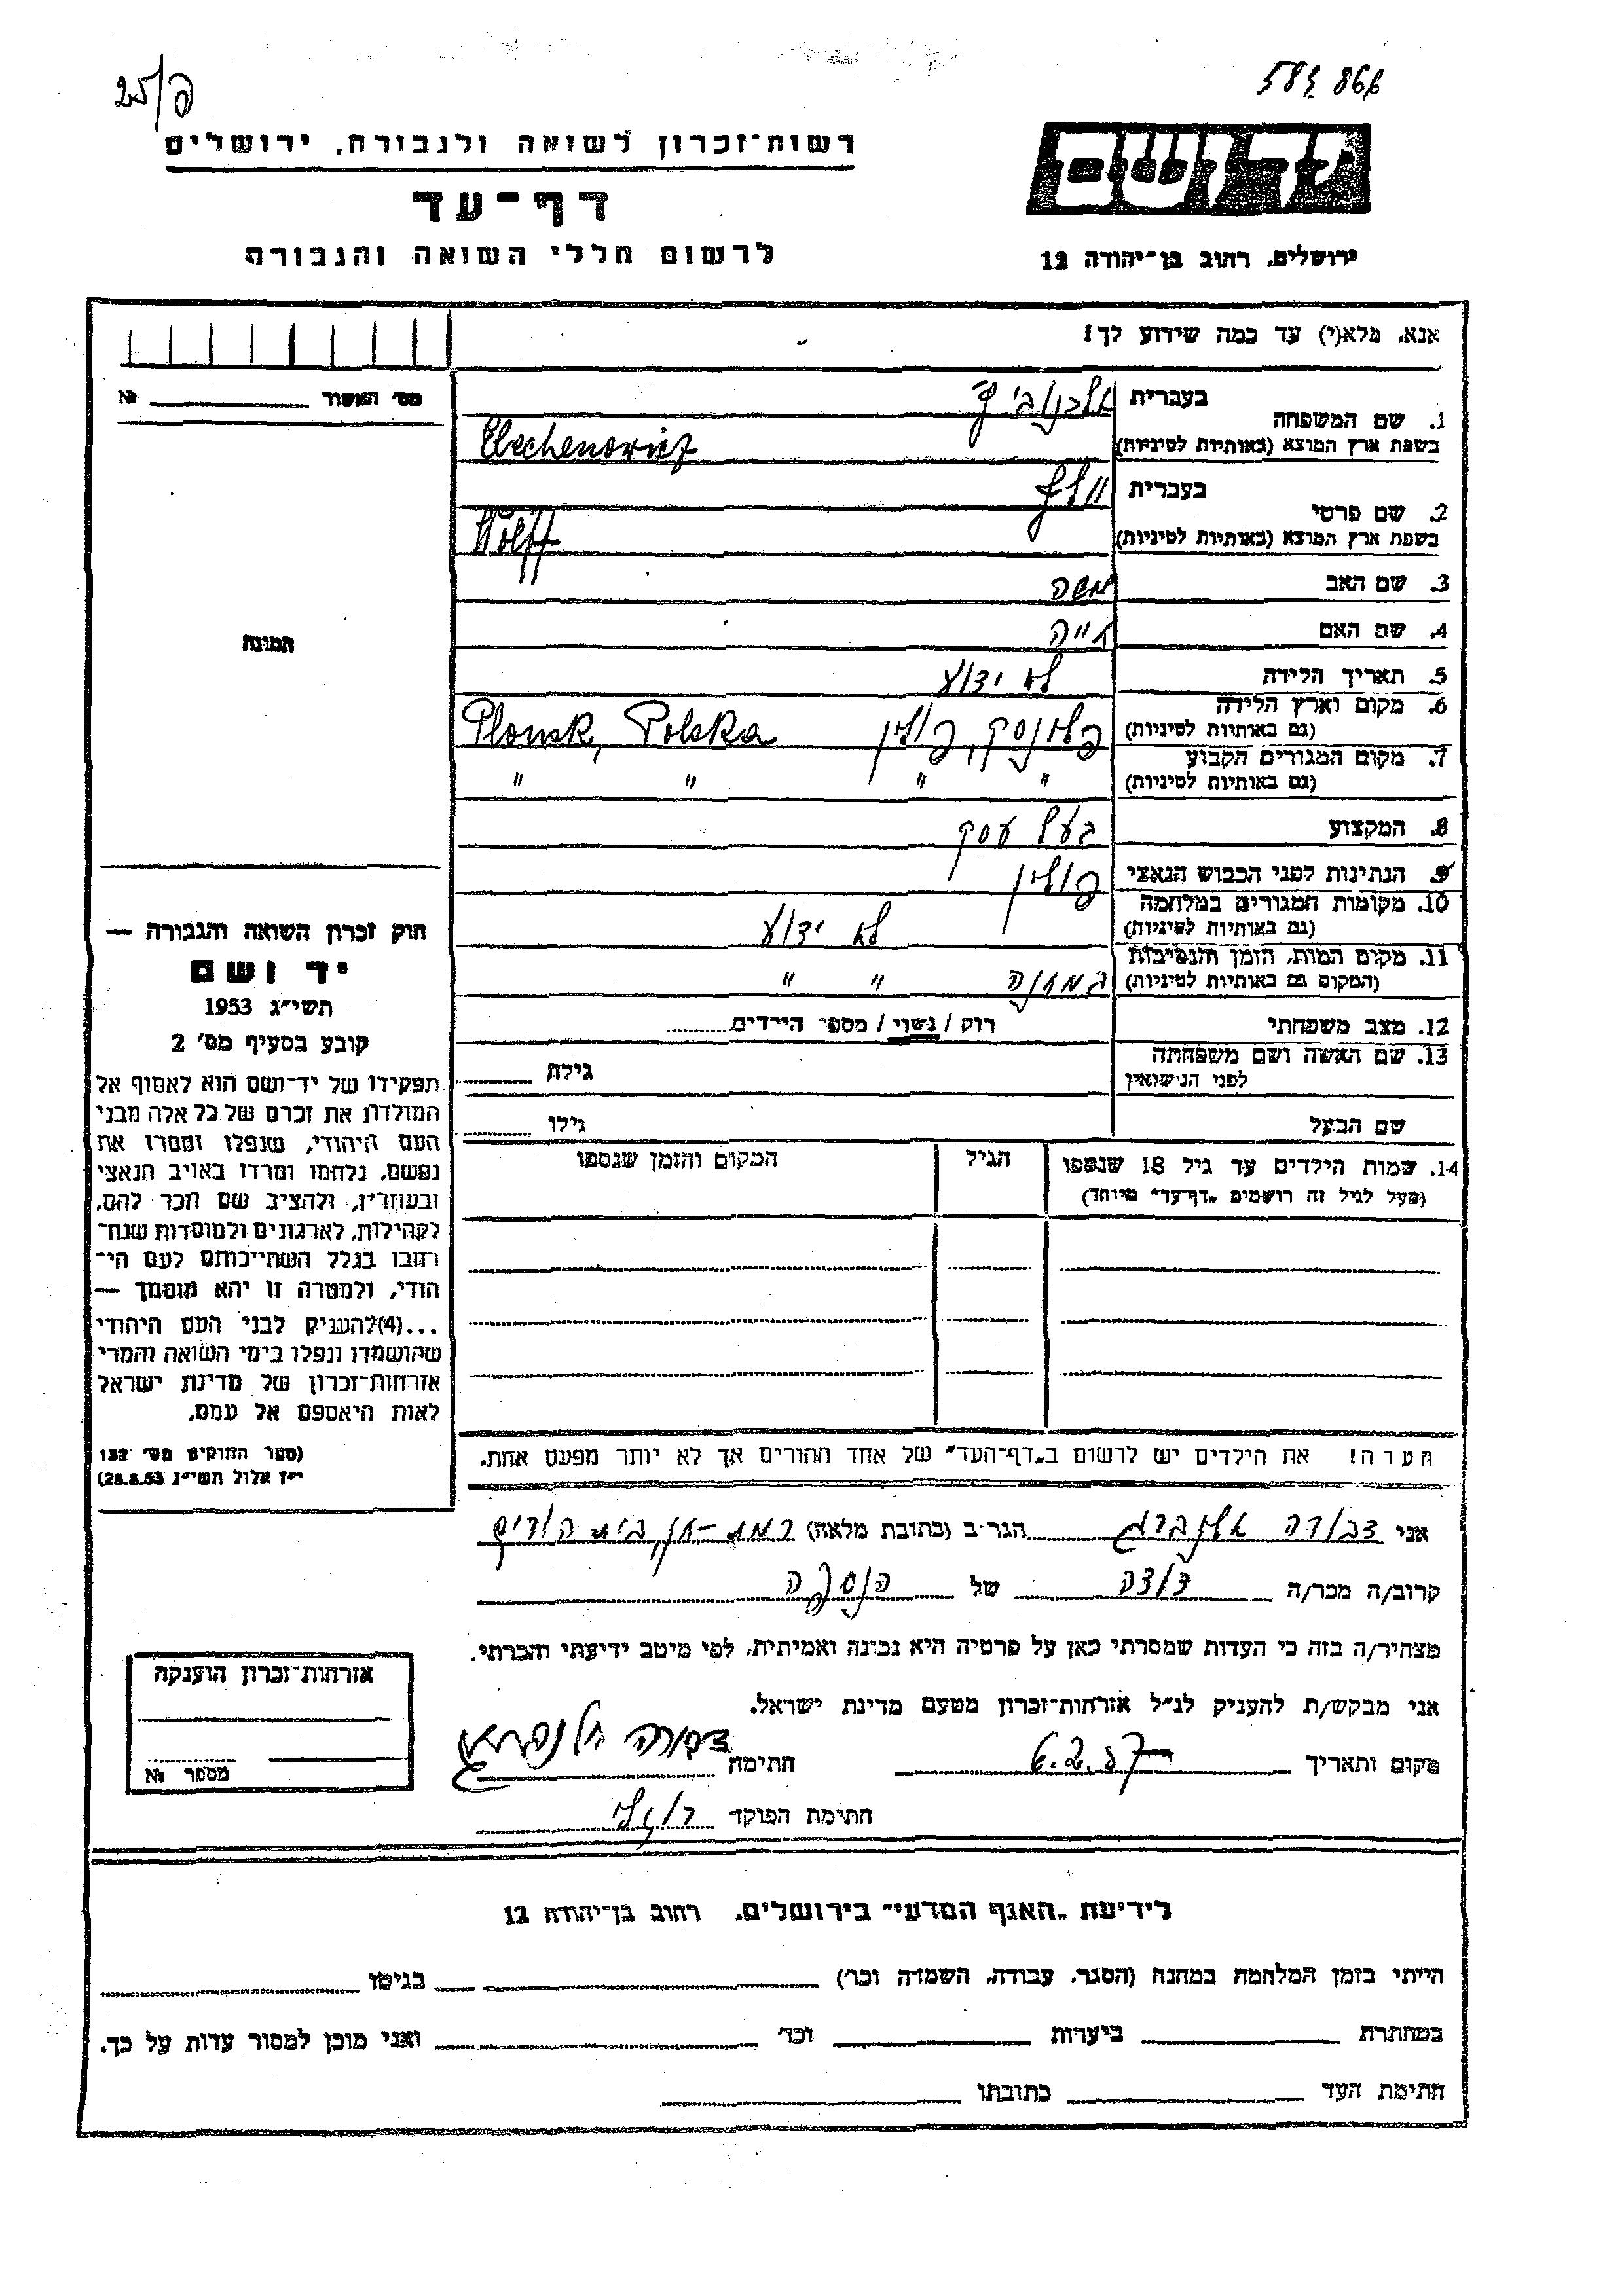 25/פ
583 866
רשות־זכרון לשואה ולגבורה, ירושלים
דף־עד
לרשום חללי השואה והגבורה
יד ושם
ירושלים, רחוב בן־יהודה 12
אנא, מלא(י) עד כמה שידוע לך!
מס׳ האשור № 
1. שם המשפחה
בעברית אלכנוביץ
בשפת ארץ המוצא (באותיות לטיניות) Elechenowicz
2. שם פרטי
בעברית וולף
בשפת ארץ המוצא (באותיות לטיניות) Wolff
3. שם האב משה
4. שם האם חייה
5. תאריך הלידה לא ידוע
6. מקום וארץ הלידה
(גם באותיות לטיניות) פלונסק, פולין Plonsk, Polska
7. מקום המגורים הקבוע
(גם באותיות לטיניות) " " " "
8. המקצוע בעל עסק
9. הנתינות לפני הכבוש הנאצי פולין
10. מקומות המגורים במלחמה
(גם באותיות לטיניות) לא ידוע
11. מקום המות, הזמן והנסיבות
(המקום גם באותיות לטיניות) במחנה " "
12. מצב משפחתי רוק / נשוי / מספר הילדים
13. שם האשה ושם משפחתה
לפני הנישואין גילה
שם הבעל גילו
14. שמות הילדים עד גיל 18 שנספו הגיל המקום והזמן שנספו
(מעל לגיל זה רושמים „דף־עד״ מיוחד)
תמונה
חוק זכרון השואה והגבורה —
יד ושם
תשי״ג 1953
קובע בסעיף מס׳ 2
תפקידו של יד־ושם הוא לאסוף אל
המולדת את זכרם של כל אלה מבני
העם היהודי, שנפלו ומסרו את
נפשם, נלחמו ומרדו באויב הנאצי
ובעוזריו, ולהציב שם וזכר להם,
לקהילות, לארגונים ולמוסדות שנח־
רבו בגלל השתייכותם לעם הי־
הודי, ולמטרה זו יהא מוסמך —
...(4)להעניק לבני העם היהודי
שהושמדו ונפלו בימי השואה והמרי
אזרחות־זכרון של מדינת ישראל
לאות היאספם אל עמם.
(ספר החוקים מס׳ 132
י״ז אלול תשי״ג 28.8.53)
הערה! את הילדים יש לרשום ב„דף־העד״ של אחד ההורים אך לא יותר מפעם אחת.
אני דבורה הגר ב (כתובת מלאה) רמת-גן,
קרוב/ה מכר/ה דודה של הנספה
מצהיר/ה בזה כי העדות שמסרתי כאן על פרטיה היא נכונה ואמיתית, לפי מיטב ידיעתי והכרתי.
אני מבקש/ת להעניק לנ״ל אזרחות־זכרון מטעם מדינת ישראל.
מקום ותאריך 6.2.57 חתימה דבורה
חתימת הפוקד
אזרחות־זכרון הוענקה
מספר №
לידיעת „האגף המדעי״ בירושלים, רחוב בן־יהודה 12
הייתי בזמן המלחמה במחנה (הסגר, עבודה, השמדה וכו׳) בגיטו
במחתרת ביערות וכו׳ ואני מוכן למסור עדות על כך.
חתימת העד כתובתו